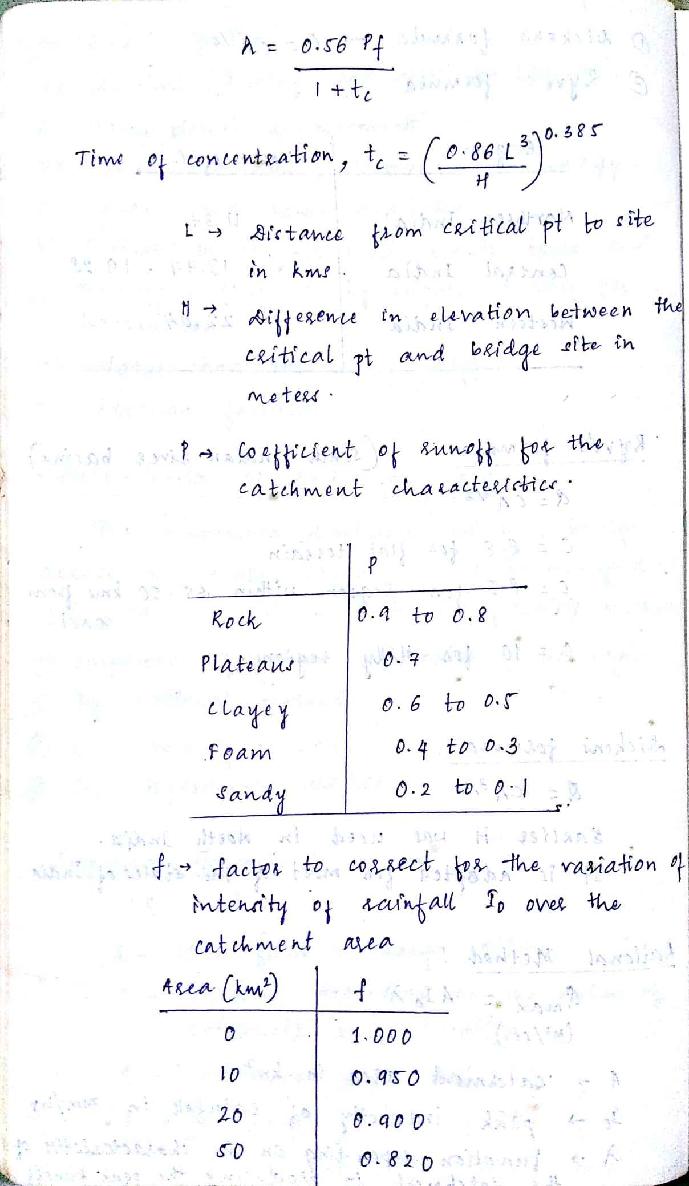 A = 0.56 Pf / 1 + tc
Time of concentration, tc = (0.86 L³ / H)^0.385
L → Distance from critical pt to site
in kms.
H → Difference in elevation between the
critical pt and bridge site in
meters.
P → Coefficient of runoff for the
catchment characteristics.
P
Rock 0.9 to 0.8
Plateaus 0.7
Clayey 0.6 to 0.5
Foam 0.4 to 0.3
Sandy 0.2 to 0.1
f → factor to correct for the variation of
intensity of rainfall Io over the
catchment area
Area (km²) f
0 1.000
10 0.950
20 0.900
50 0.820